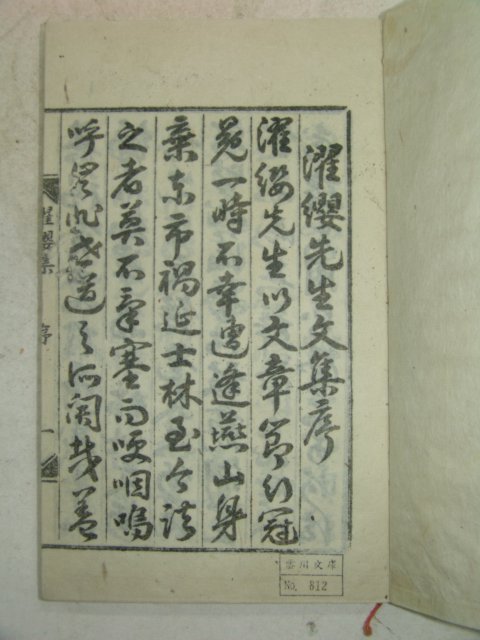 濯纓先生文集序
濯纓先生以文章節行冠
冕一時不幸遭逢燕山身
棄東市禍延士林至今談
之者莫不氣塞而哽咽嗚
呼豈非世道之所関哉蓋
濯纓集 序 一
川文庫
No. 812